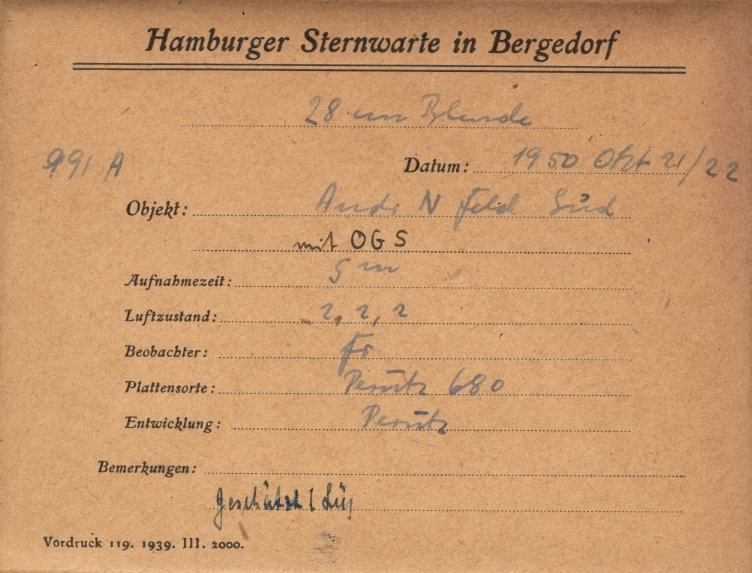 Hamburger Sternwarte in Bergedorf
28 cm Blende
991 A Datum: 1950 Okt 21/22
Objekt: Andr N Feld Süd
mit OGS
Aufnahmezeit: 5 m
Luftzustand: 2, 2, 2
Beobachter: Fr
Plattensorte: Perutz 680
Entwicklung: Perutz
Bemerkungen:
geschätzt
Vordruck 119. 1939. III. 2000.